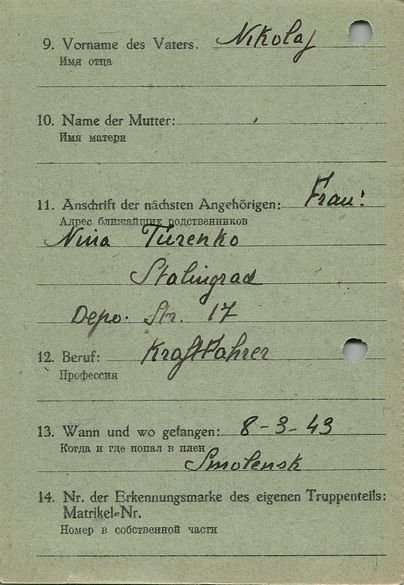 9. Vorname des Vaters. Nikolaj
Имя отца
10. Name der Mutter:
Имя матери
11. Anschrift der nächsten Angehörigen: Frau:
Адрес ближайших родственников
Nina Turenko
Stalingrad
Depo. Str. 17
12. Beruf: Kraftfahrer
Профессия
13. Wann und wo gefangen: 8-3-43
Когда и где попал в плен
Smolensk
14. Nr. der Erkennungsmarke des eigenen Truppenteils:
Matrikel-Nr.
Номер в собственной части